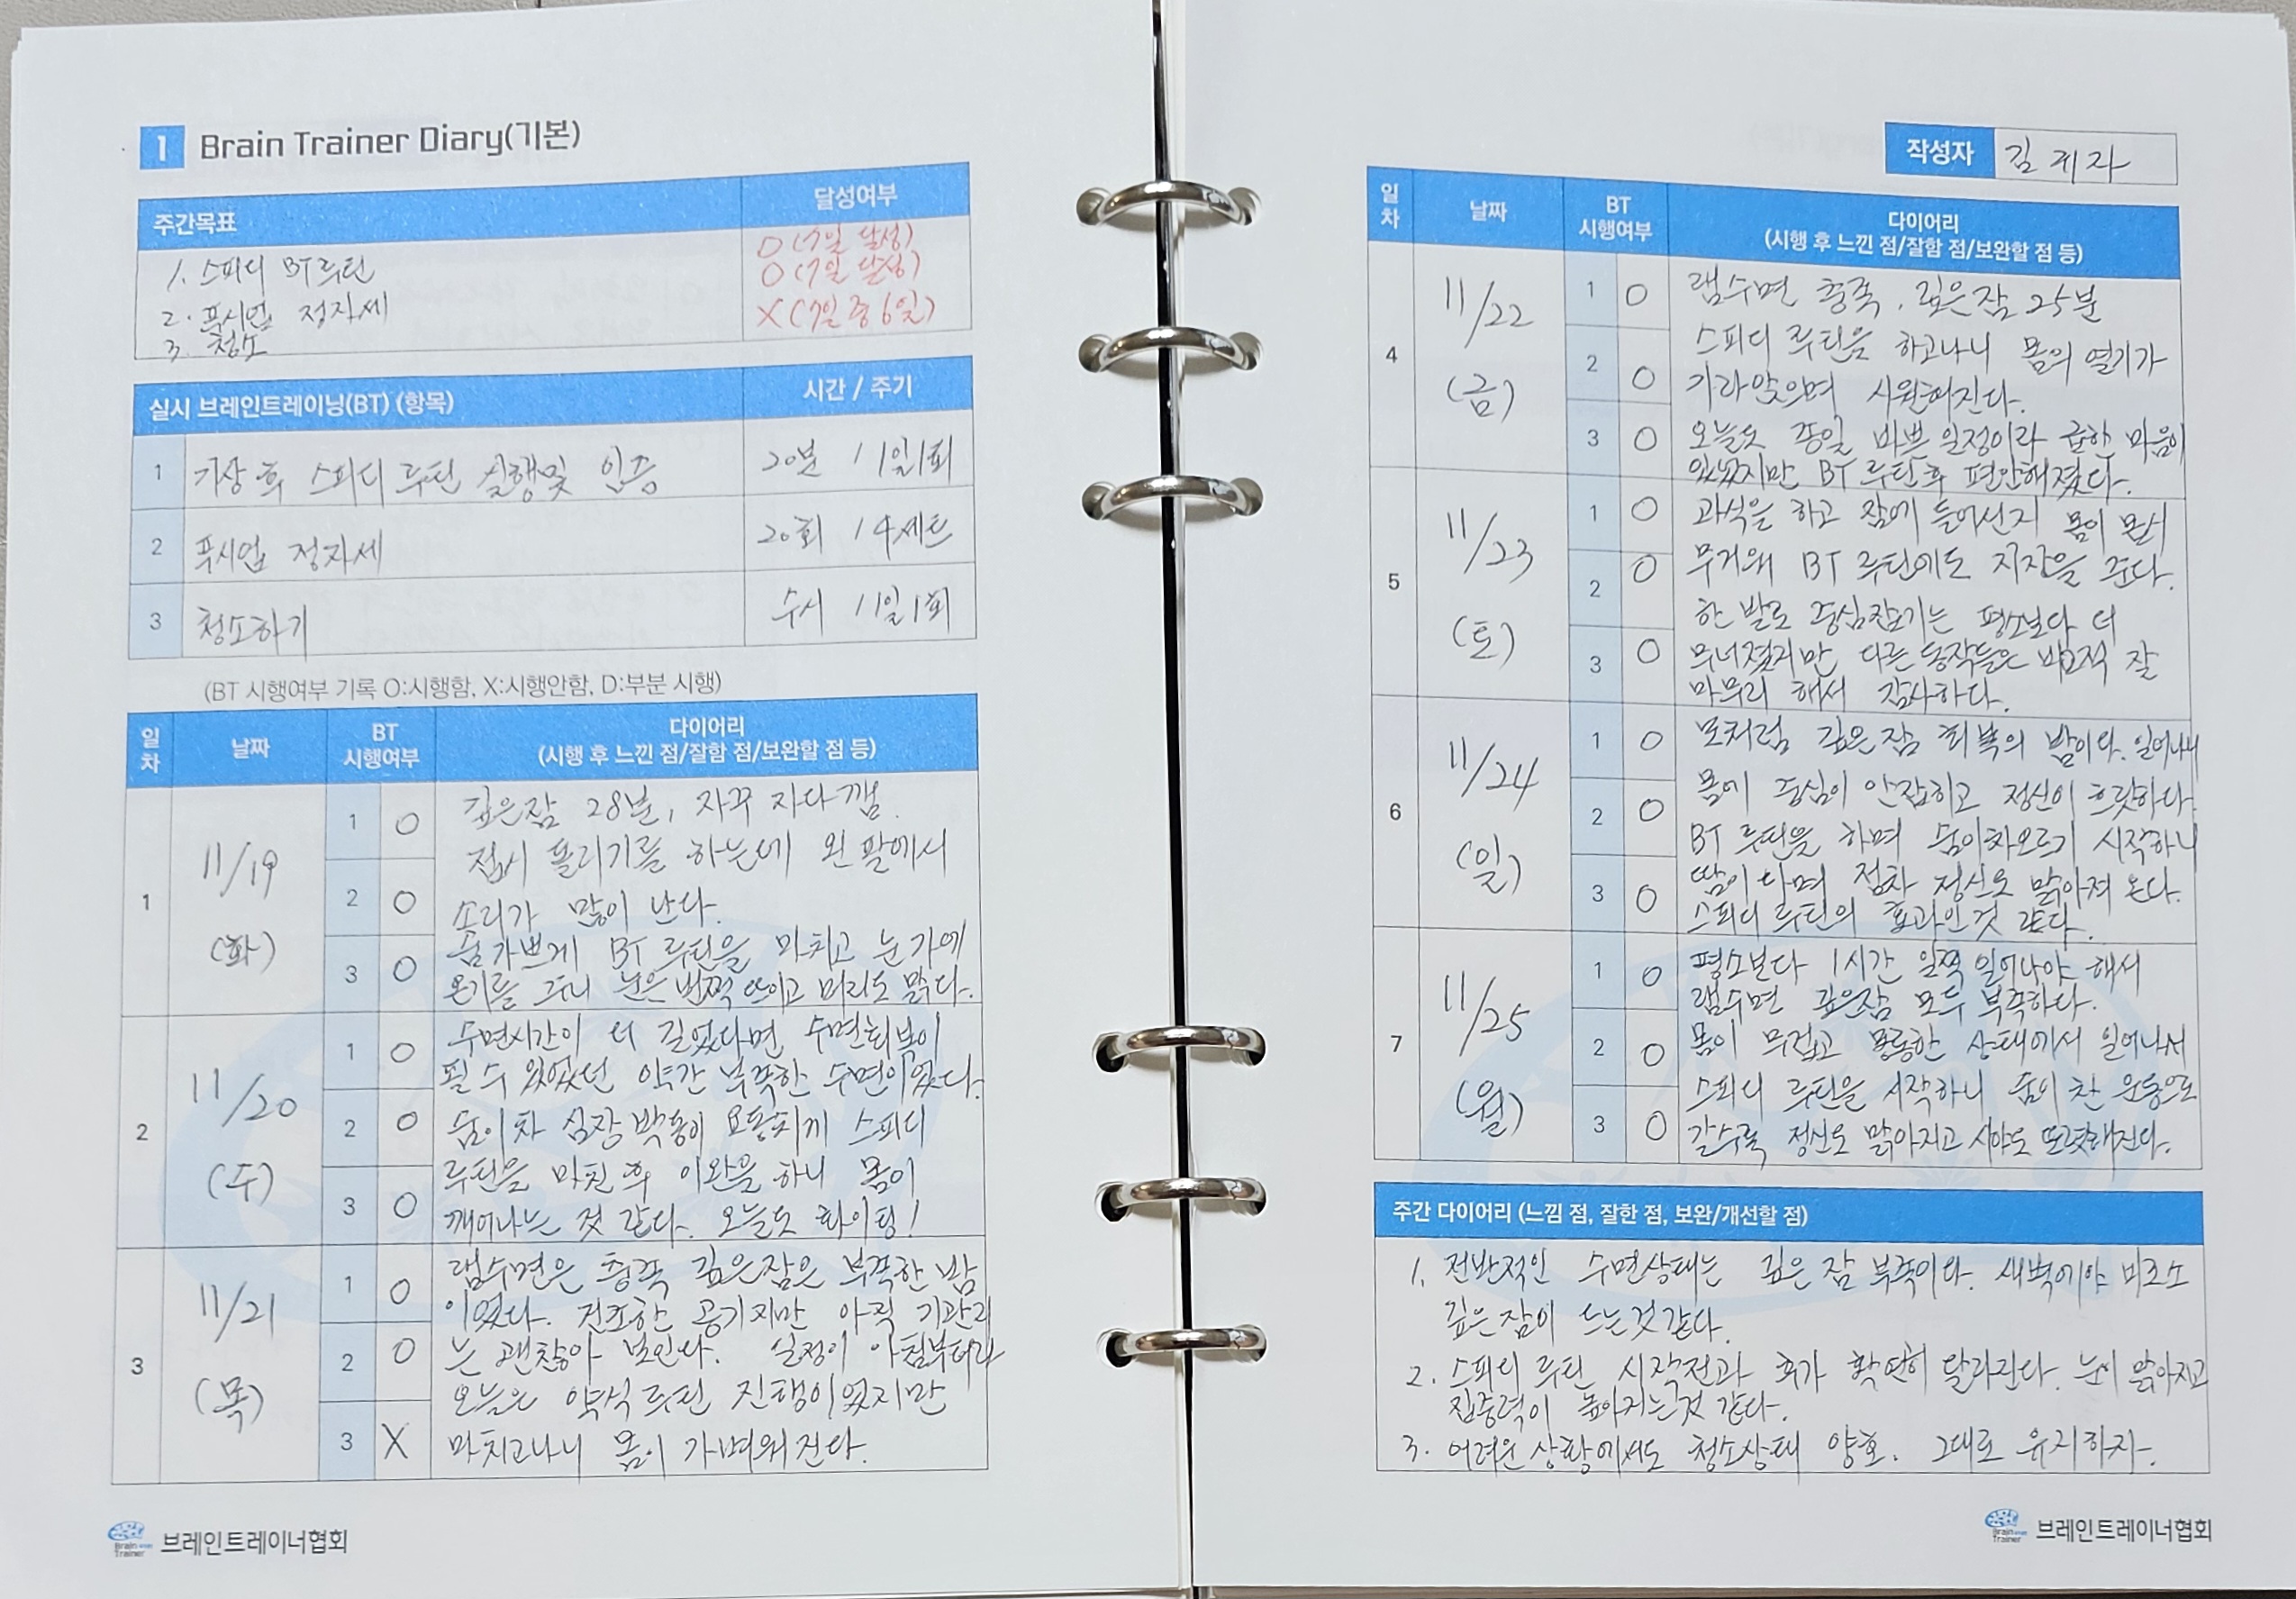 1 Brain Trainer Diary(기본)
주간목표 달성여부
1. 스피디 BT루틴 O (7일 달성)
2. 푸시업 정자세 O (7일 달성)
3. 청소 X (7일 중 6일)
실시 브레인트레이닝(BT) (항목) 시간 / 주기
1 기상 후 스피디 루틴 실행및 인증 20분 / 1일1회
2 푸시업 정자세 20회 / 4세트
3 청소하기 수시 / 1일1회
(BT 시행여부 기록 O:시행함, X:시행안함, D:부분 시행)
일차 날짜 BT 시행여부 다이어리
(시행 후 느낀 점/잘함 점/보완할 점 등)
1 11/19 (화) 1 O 2 O 3 O
깊은잠 28분, 자꾸 자다 깸.
접시 돌리기를 하는데 왼 팔에서
소리가 많이 난다.
숨가쁘게 BT 루틴을 마치고 눈가에
온기를 주니 눈은 번쩍 뜨이고 머리도 맑다.
2 11/20 (수) 1 O 2 O 3 O
수면시간이 더 길었다면 수면회복이
될 수 있었던 약간 부족한 수면이었다.
숨이차 심장 박동이 요동치게 스피디
루틴을 마친 후 이완을 하니 몸이
깨어나는 것 같다. 오늘도 화이팅!
3 11/21 (목) 1 O 2 O 3 X
램수면은 충족 깊은잠은 부족한 밤
이었다. 건조한 공기지만 아직 기관지
는 괜찮아 보인다. 일정이 아침부터라
오늘은 약식 루틴 진행이었지만
마치고나니 몸이 가벼워진다.
작성자 김계자
일차 날짜 BT 시행여부 다이어리
(시행 후 느낀 점/잘함 점/보완할 점 등)
4 11/22 (금) 1 O 2 O 3 O
램수면 충족, 깊은잠 25분
스피디 루틴을 하고나니 몸의 열기가
가라앉으며 시원해진다.
오늘도 종일 바쁜 일정이라 급한 마음이
있었지만 BT 루틴후 편안해졌다.
5 11/23 (토) 1 O 2 O 3 O
과식을 하고 잠에 들어선지 몸이 몹시
무거워 BT 루틴에도 지장을 준다.
한 발로 중심잡기는 평소보다 더
무너졌지만 다른 동작들은 비교적 잘
마무리 해서 감사하다.
6 11/24 (일) 1 O 2 O 3 O
모처럼 깊은잠 회복의 밤이다. 일어나니
몸에 중심이 안잡히고 정신이 흐릿하다.
BT 루틴을 하며 숨이차오르기 시작하니
땀이 나며 점차 정신도 맑아져 온다.
스피디 루틴의 효과인것 같다.
7 11/25 (월) 1 O 2 O 3 O
평소보다 1시간 일찍 일어나야 해서
램수면 깊은잠 모두 부족하다.
몸이 무겁고 몽롱한 상태에서 일어나서
스피디 루틴을 시작하니 숨이 찬 운동으로
갈수록 정신도 맑아지고 시야도 또렷해진다.
주간 다이어리 (느낌 점, 잘한 점, 보완/개선할 점)
1. 전반적인 수면상태는 깊은 잠 부족이다. 새벽에야 비로소
깊은잠이 드는것같다.
2. 스피디 루틴 시작전과 후가 확연히 달라진다. 눈이 맑아지고
집중력이 높아지는것 같다.
3. 어려운 상황에서도 청소상태 양호. 그대로 유지하자.
Brain Trainer 브레인트레이너협회
Brain Trainer 브레인트레이너협회